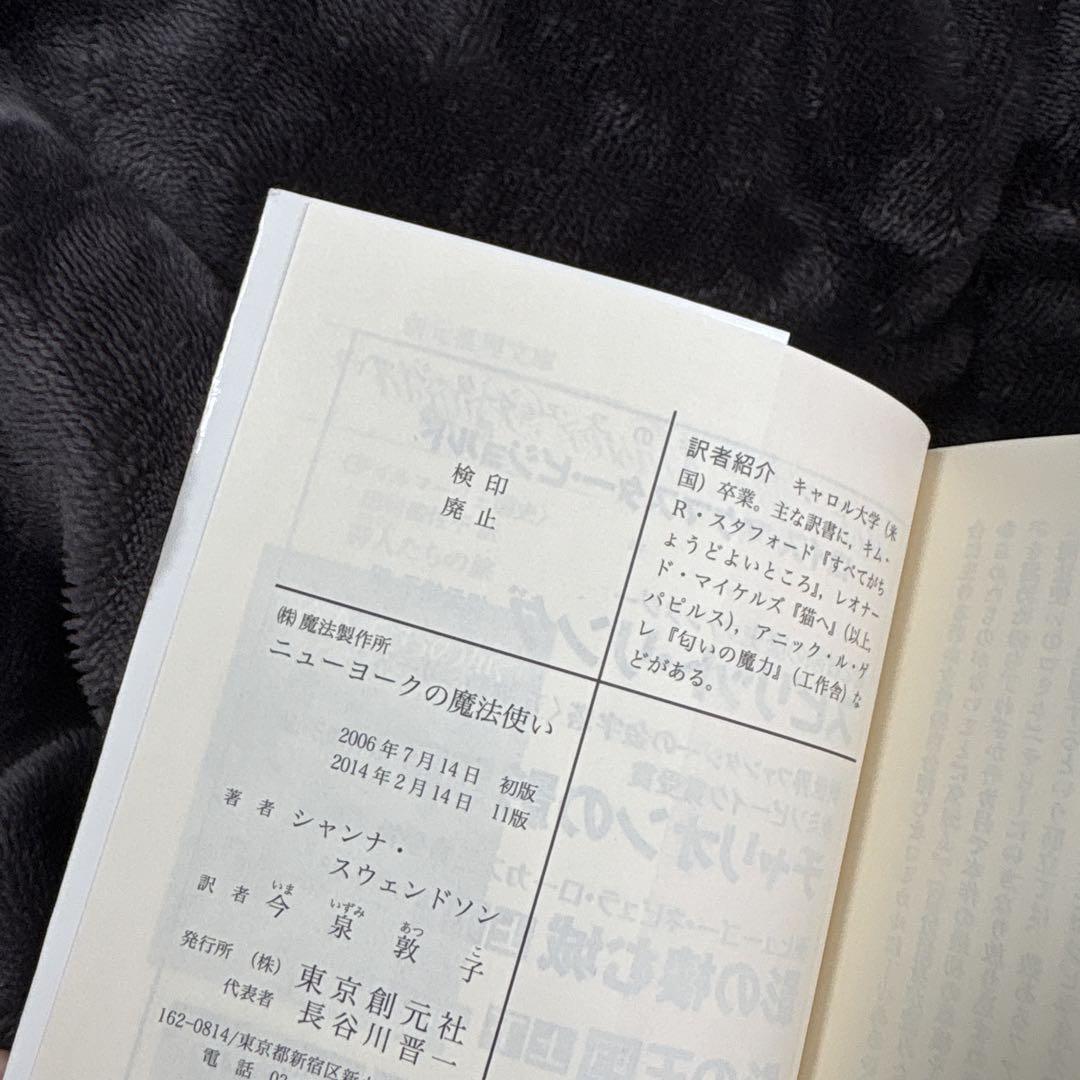 訳者紹介 キャロル大学(米
国)卒業。主な訳書に,キム・
R・スタフォード『すべてがち
ょうどよいところ』,レオナー
ド・マイケルズ『猫へ』(以上,
パピルス),アニック・ル・ゲ
レ『匂いの魔力』(工作舎)な
どがある。
検印
廃止
㈱魔法製作所
ニューヨークの魔法使い
2006年7月14日 初版
2014年2月14日 11版
著者 シャンナ・
スウェンドソン
いま いずみ あつ こ
訳者 今泉敦子
発行所 (株) 東京創元社
代表者 長谷川晋一
162-0814/東京都新宿区新
電話 03